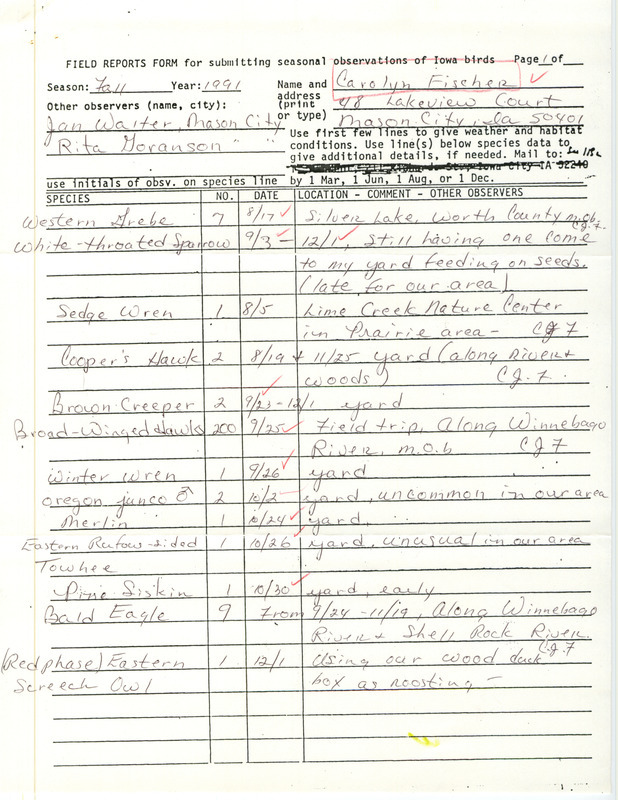 FIELD REPORTS FORM for submitting seasonal observations of Iowa birds Page 1 of
Season: Fall Year: 1991 Name and Carolyn Fischer
address 48 Lakeview Court
Other observers (name, city): (print
or type) Mason City, Ia 50401
Jan Walter, Mason City
Rita Goranson " "
Use first few lines to give weather and habitat
conditions. Use line(s) below species data to
give additional details, if needed. Mail to:
Iowa City IA 52240
use initials of obsv. on species line by 1 Mar, 1 Jun, 1 Aug, or 1 Dec.
SPECIES NO. DATE LOCATION - COMMENT - OTHER OBSERVERS
Western Grebe 7 8/17 Silver Lake, Worth County m.ob. CJF.
White-throated Sparrow 9/3 - 12/1, Still having one come
to my yard feeding on seeds.
(late for our area)
Sedge Wren 1 8/5 Lime Creek Nature Center
in Prairie area - CJF
Cooper's Hawk 2 8/19 + 11/25 yard (along River +
woods) CJF.
Brown Creeper 2 9/23-12/1 yard
Broad-Winged Hawks 200 9/25 Field trip, Along Winnebago
River, m.o.b CJF
Winter Wren 1 9/26 yard
oregon junco ♂ 2 10/2 yard, uncommon in our area
Merlin 1 10/24 yard.
Eastern Rufous-sided 1 10/26 yard. unusual in our area
Towhee
Pine Siskin 1 10/30 yard, early
Bald Eagle 9 From 9/24 - 11/19, Along Winnebago
River + Shell Rock River.
CJF
(Red phase) Eastern 1 12/1 Using our wood duck
Screech Owl box as roosting -